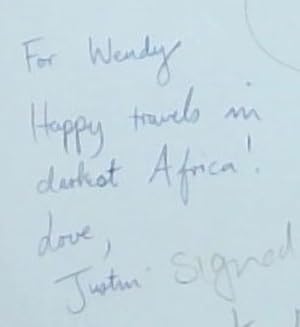 For Wendy
Happy travels in
darkest Africa!
Love,
Justin signed